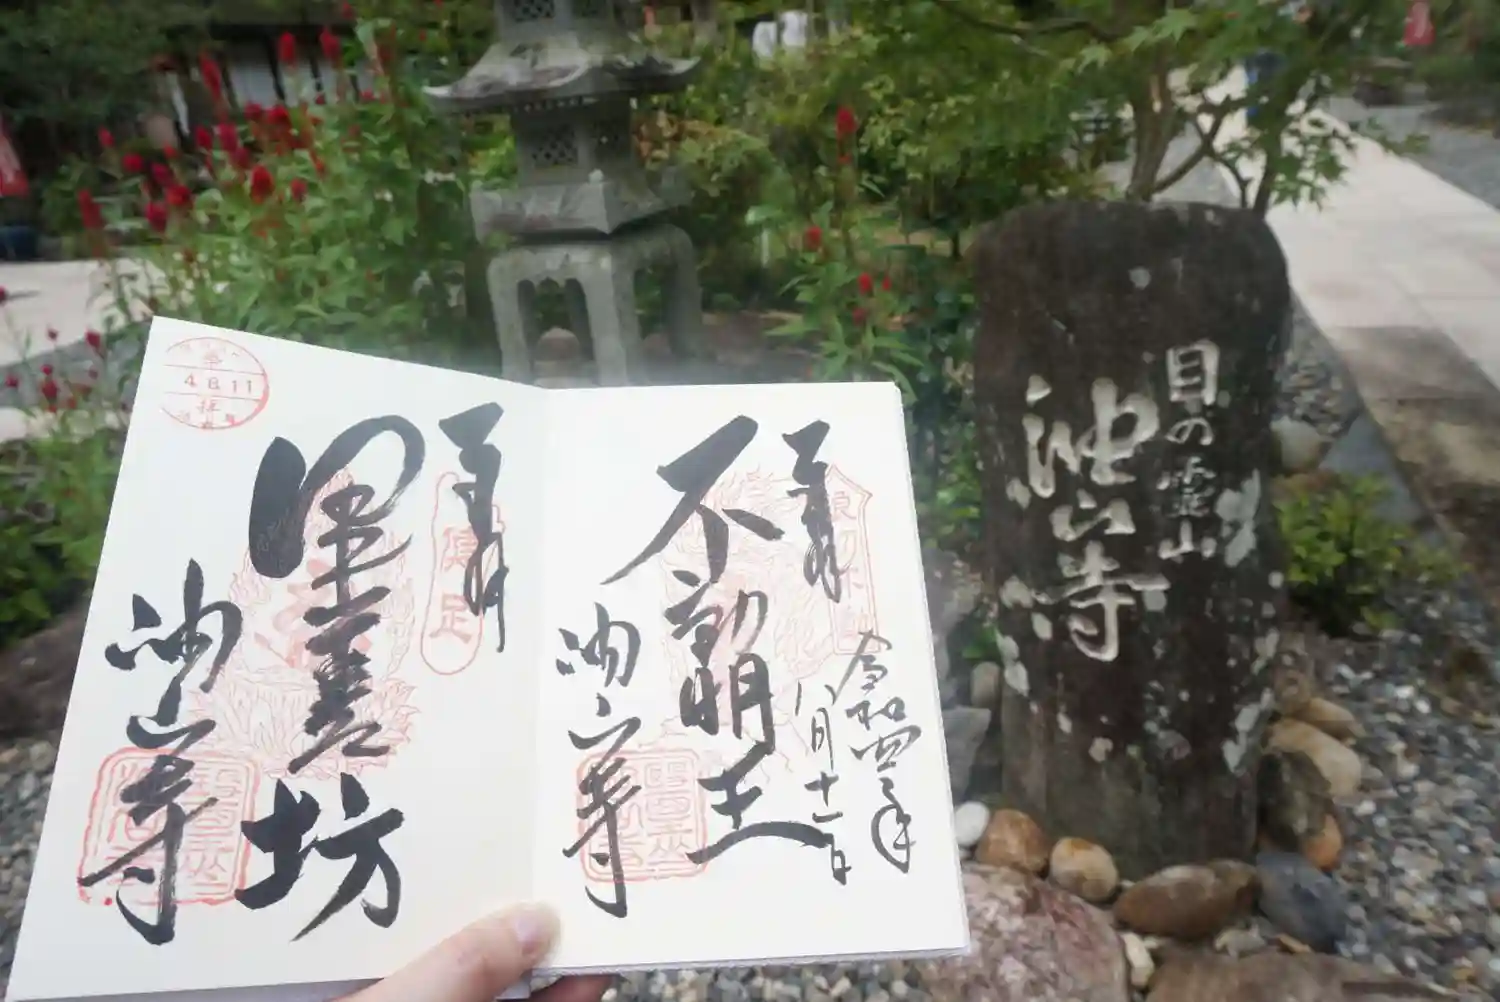 目の霊山
油山寺
奉拝
令和四年
八月十一日
不動明王
油山寺
奉拝
健足
軍善坊
油山寺
4.8.11